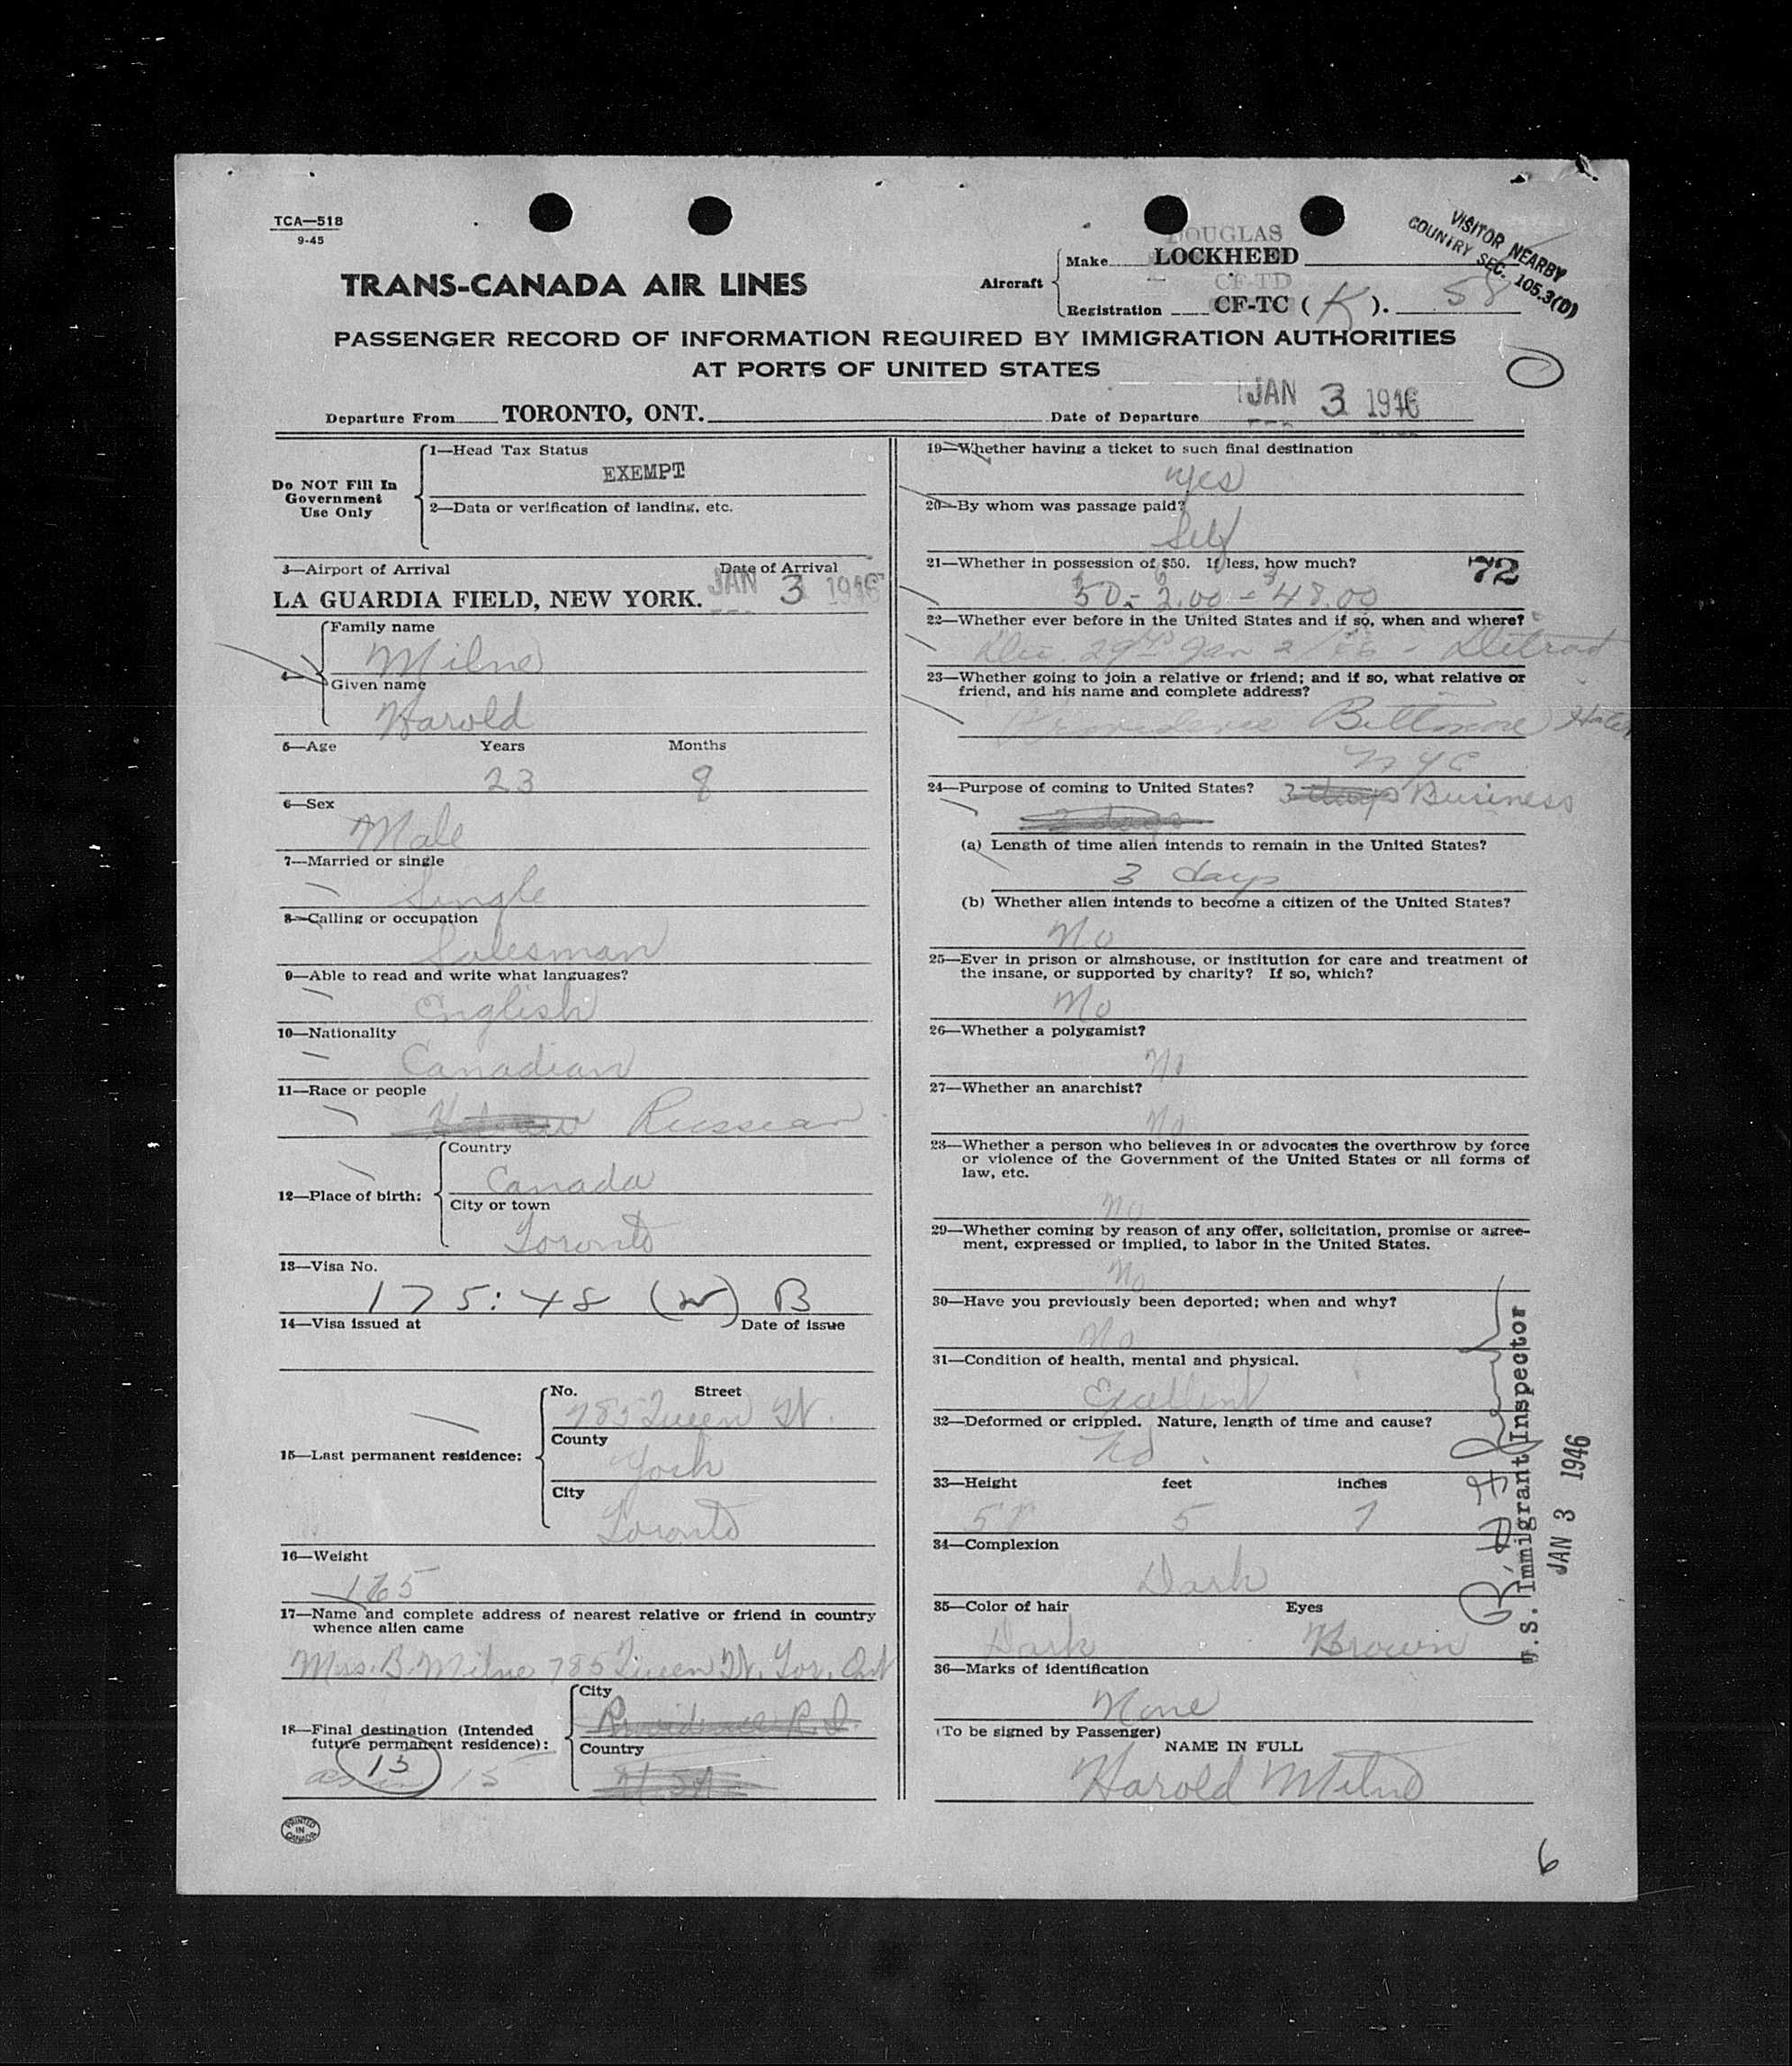 TCA—518
9-45
VISITOR NEARBY
COUNTRY SEC. 105.3(D)
DOUGLAS
Aircraft Make LOCKHEED
CF-TD
Registration CF-TC (K). 58
TRANS-CANADA AIR LINES
PASSENGER RECORD OF INFORMATION REQUIRED BY IMMIGRATION AUTHORITIES
AT PORTS OF UNITED STATES
Departure From TORONTO, ONT. Date of Departure JAN 3 1946
Do NOT Fill In
Government
Use Only
1—Head Tax Status
EXEMPT
2—Data or verification of landing, etc.
3—Airport of Arrival Date of Arrival
LA GUARDIA FIELD, NEW YORK. JAN 3 1946
4— Family name
Milne
Given name
Harold
5—Age Years Months
23 8
6—Sex
Male
7—Married or single
Single
8—Calling or occupation
Salesman
9—Able to read and write what languages?
English
10—Nationality
Canadian
11—Race or people
Hebrew Russian
12—Place of birth: Country
Canada
City or town
Toronto
13—Visa No.
175:48 (w) B
14—Visa issued at Date of issue
15—Last permanent residence: No. Street
785 Queen W.
County
York
City
Toronto
16—Weight
165
17—Name and complete address of nearest relative or friend in country
whence alien came
Mrs. B. Milne 785 Queen W. Tor. Ont
18—Final destination (Intended
future permanent residence):
City
Providence R.I.
Country
U.S.A.
15
as in 15
PRINTED
IN
CANADA
19—Whether having a ticket to such final destination
Yes
20—By whom was passage paid?
Self
21—Whether in possession of $50. If less, how much? 72
50.- 2.00 = 48.00
22—Whether ever before in the United States and if so, when and where?
Dec. 29th Jan 2/46 - Detroit
23—Whether going to join a relative or friend; and if so, what relative or
friend, and his name and complete address?
Providence Biltmore Hotel
N Y C
24—Purpose of coming to United States? 3 days Business
3 days
(a) Length of time alien intends to remain in the United States?
3 days
(b) Whether alien intends to become a citizen of the United States?
No
25—Ever in prison or almshouse, or institution for care and treatment of
the insane, or supported by charity? If so, which?
No
26—Whether a polygamist?
No
27—Whether an anarchist?
No
28—Whether a person who believes in or advocates the overthrow by force
or violence of the Government of the United States or all forms of
law, etc.
No
29—Whether coming by reason of any offer, solicitation, promise or agree-
ment, expressed or implied, to labor in the United States.
No
30—Have you previously been deported; when and why?
No
31—Condition of health, mental and physical.
Excellent
32—Deformed or crippled. Nature, length of time and cause?
No
33—Height feet inches
5 7
34—Complexion
Dark
35—Color of hair Eyes
Dark Brown
36—Marks of identification
None
(To be signed by Passenger)
NAME IN FULL
Harold Milne
U.S. Immigrant Inspector
JAN 3 1946
6